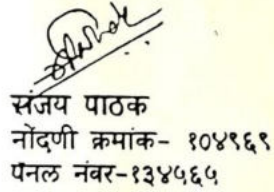 संजय पाठक
नोंदणी क्रमांक- १०४९६९
पॅनल नंबर-१३४५६५